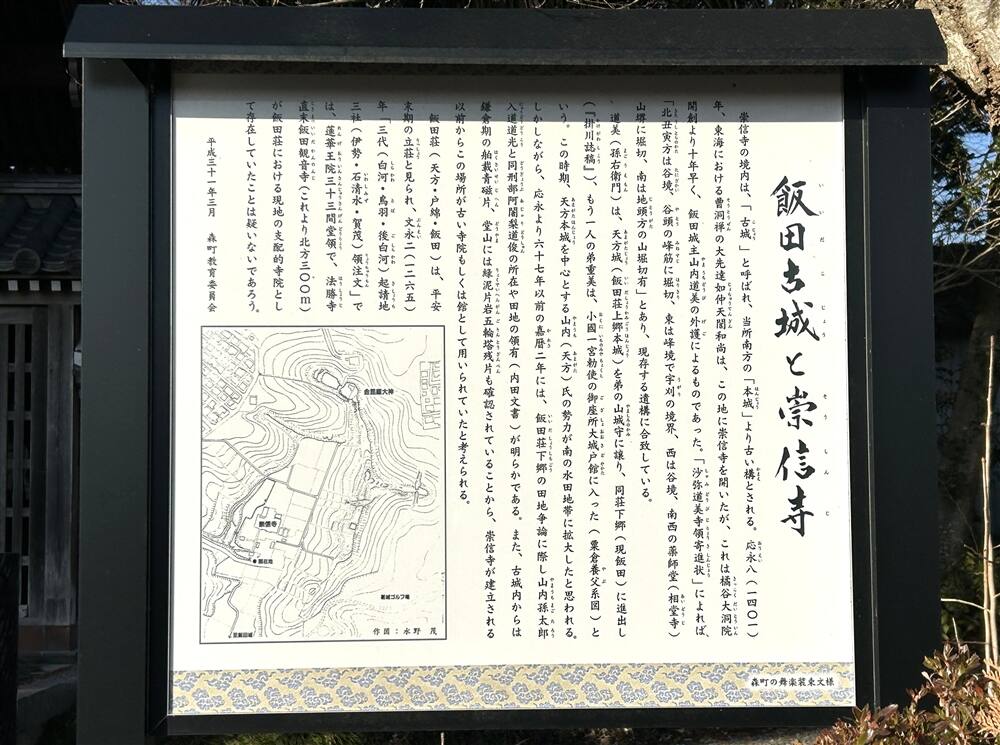 飯田古城と崇信寺
崇信寺の境内は、「古城」と呼ばれ、当所南方の「本城」より古い構とされる。応永八（一四〇一）
年、東海における曹洞禅の大先達如仲天誾和尚は、この地に崇信寺を開いたが、これは橘谷大洞院
開創より十年早く、飯田城主山内道美の外護によるものであった。「沙弥道美寺領寄進状」によれば、
「北丑寅方は谷境、谷頭の峰筋に堀切、東は峰境で宇刈の境界、西は谷境、南西の薬師堂（相堂寺）
山堺に堀切、南は地頭方の山堀切有」とあり、現存する遺構に合致している。
道美（孫右衛門）は、天方城（飯田荘上郷本城）を弟の山城守に譲り、同荘下郷（現飯田）に進出し
（『掛川誌稿』）、もう一人の弟重美は、小國一宮勅使の御座所大城戸館に入った（粟倉養父系図）と
いう。この時期、天方本城を中心とする山内（天方）氏の勢力が南の水田地帯に拡大したと思われる。
しかしながら、応永より六十七年以前の嘉暦二年には、飯田荘下郷の田地争論に際し山内孫太郎
入道道光と同刑部阿闍梨道俊の所在や田地の領有（内田文書）が明らかである。また、古城内からは
鎌倉期の舶載青磁片、堂山には緑泥片岩五輪塔残片も確認されていることから、崇信寺が建立される
以前からこの場所が古い寺院もしくは館として用いられていたと考えられる。
飯田荘（天方・戸綿・飯田）は、平安
末期の立荘と見られ、文永二（一二六五）
年「三代（白河・鳥羽・後白河）起請地
三社（伊勢・石清水・賀茂）領注文」で
は、蓮華王院三十三間堂領で、法勝寺
直末飯田観音寺（これより北方三〇〇ｍ）
が飯田荘における現地の支配的寺院とし
て存在していたことは疑いないであろう。
平成三十一年三月　森町教育委員会
金毘羅大神
崇信寺
現在地
葛城ゴルフ場
至飯田城
作図：水野 茂
森町の舞楽装束文様